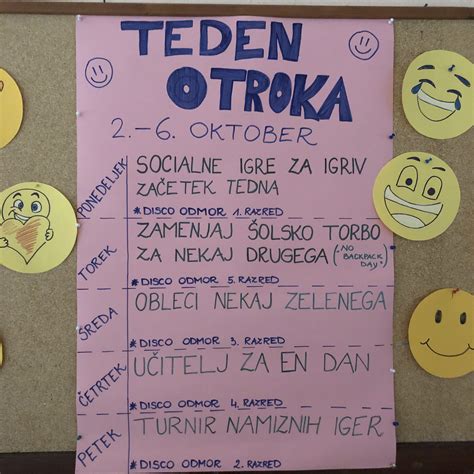 TEDEN
OTROKA
2.-6. OKTOBER
PONEDELJEK
SOCIALNE IGRE ZA IGRIV
ZAČETEK TEDNA
* DISCO ODMOR 1. RAZRED
TOREK
ZAMENJAJ ŠOLSKO TORBO
ZA NEKAJ DRUGEGA (NO
BACKPACK
DAY)
* DISCO ODMOR 5. RAZRED
SREDA
OBLECI NEKAJ ZELENEGA
* DISCO ODMOR 3. RAZRED
ČETRTEK
UČITELJ ZA EN DAN
* DISCO ODMOR 4. RAZRED
PETEK
TURNIR NAMIZNIH IGER
* DISCO ODMOR 2. RAZRED